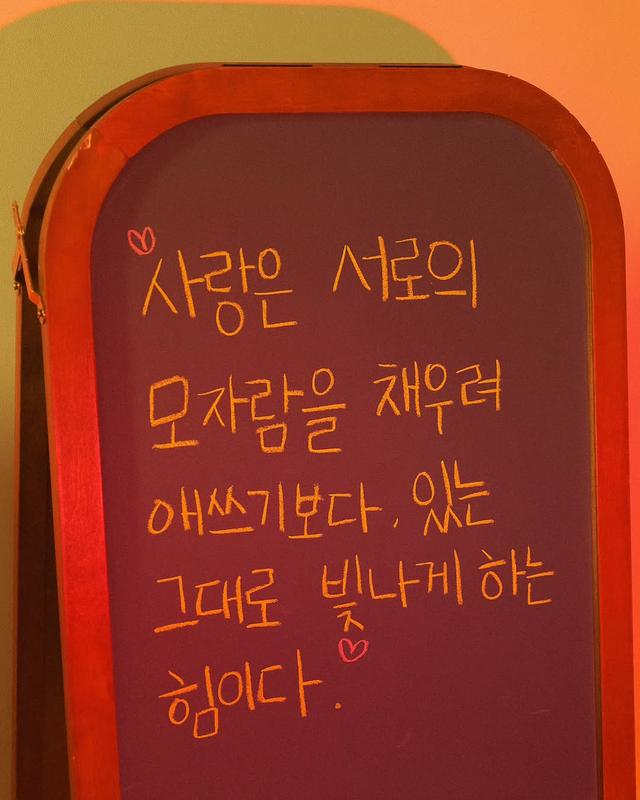 사랑은 서로의
모자람을 채우려
애쓰기보다. 있는
그대로 빛나게 하는
힘이다.